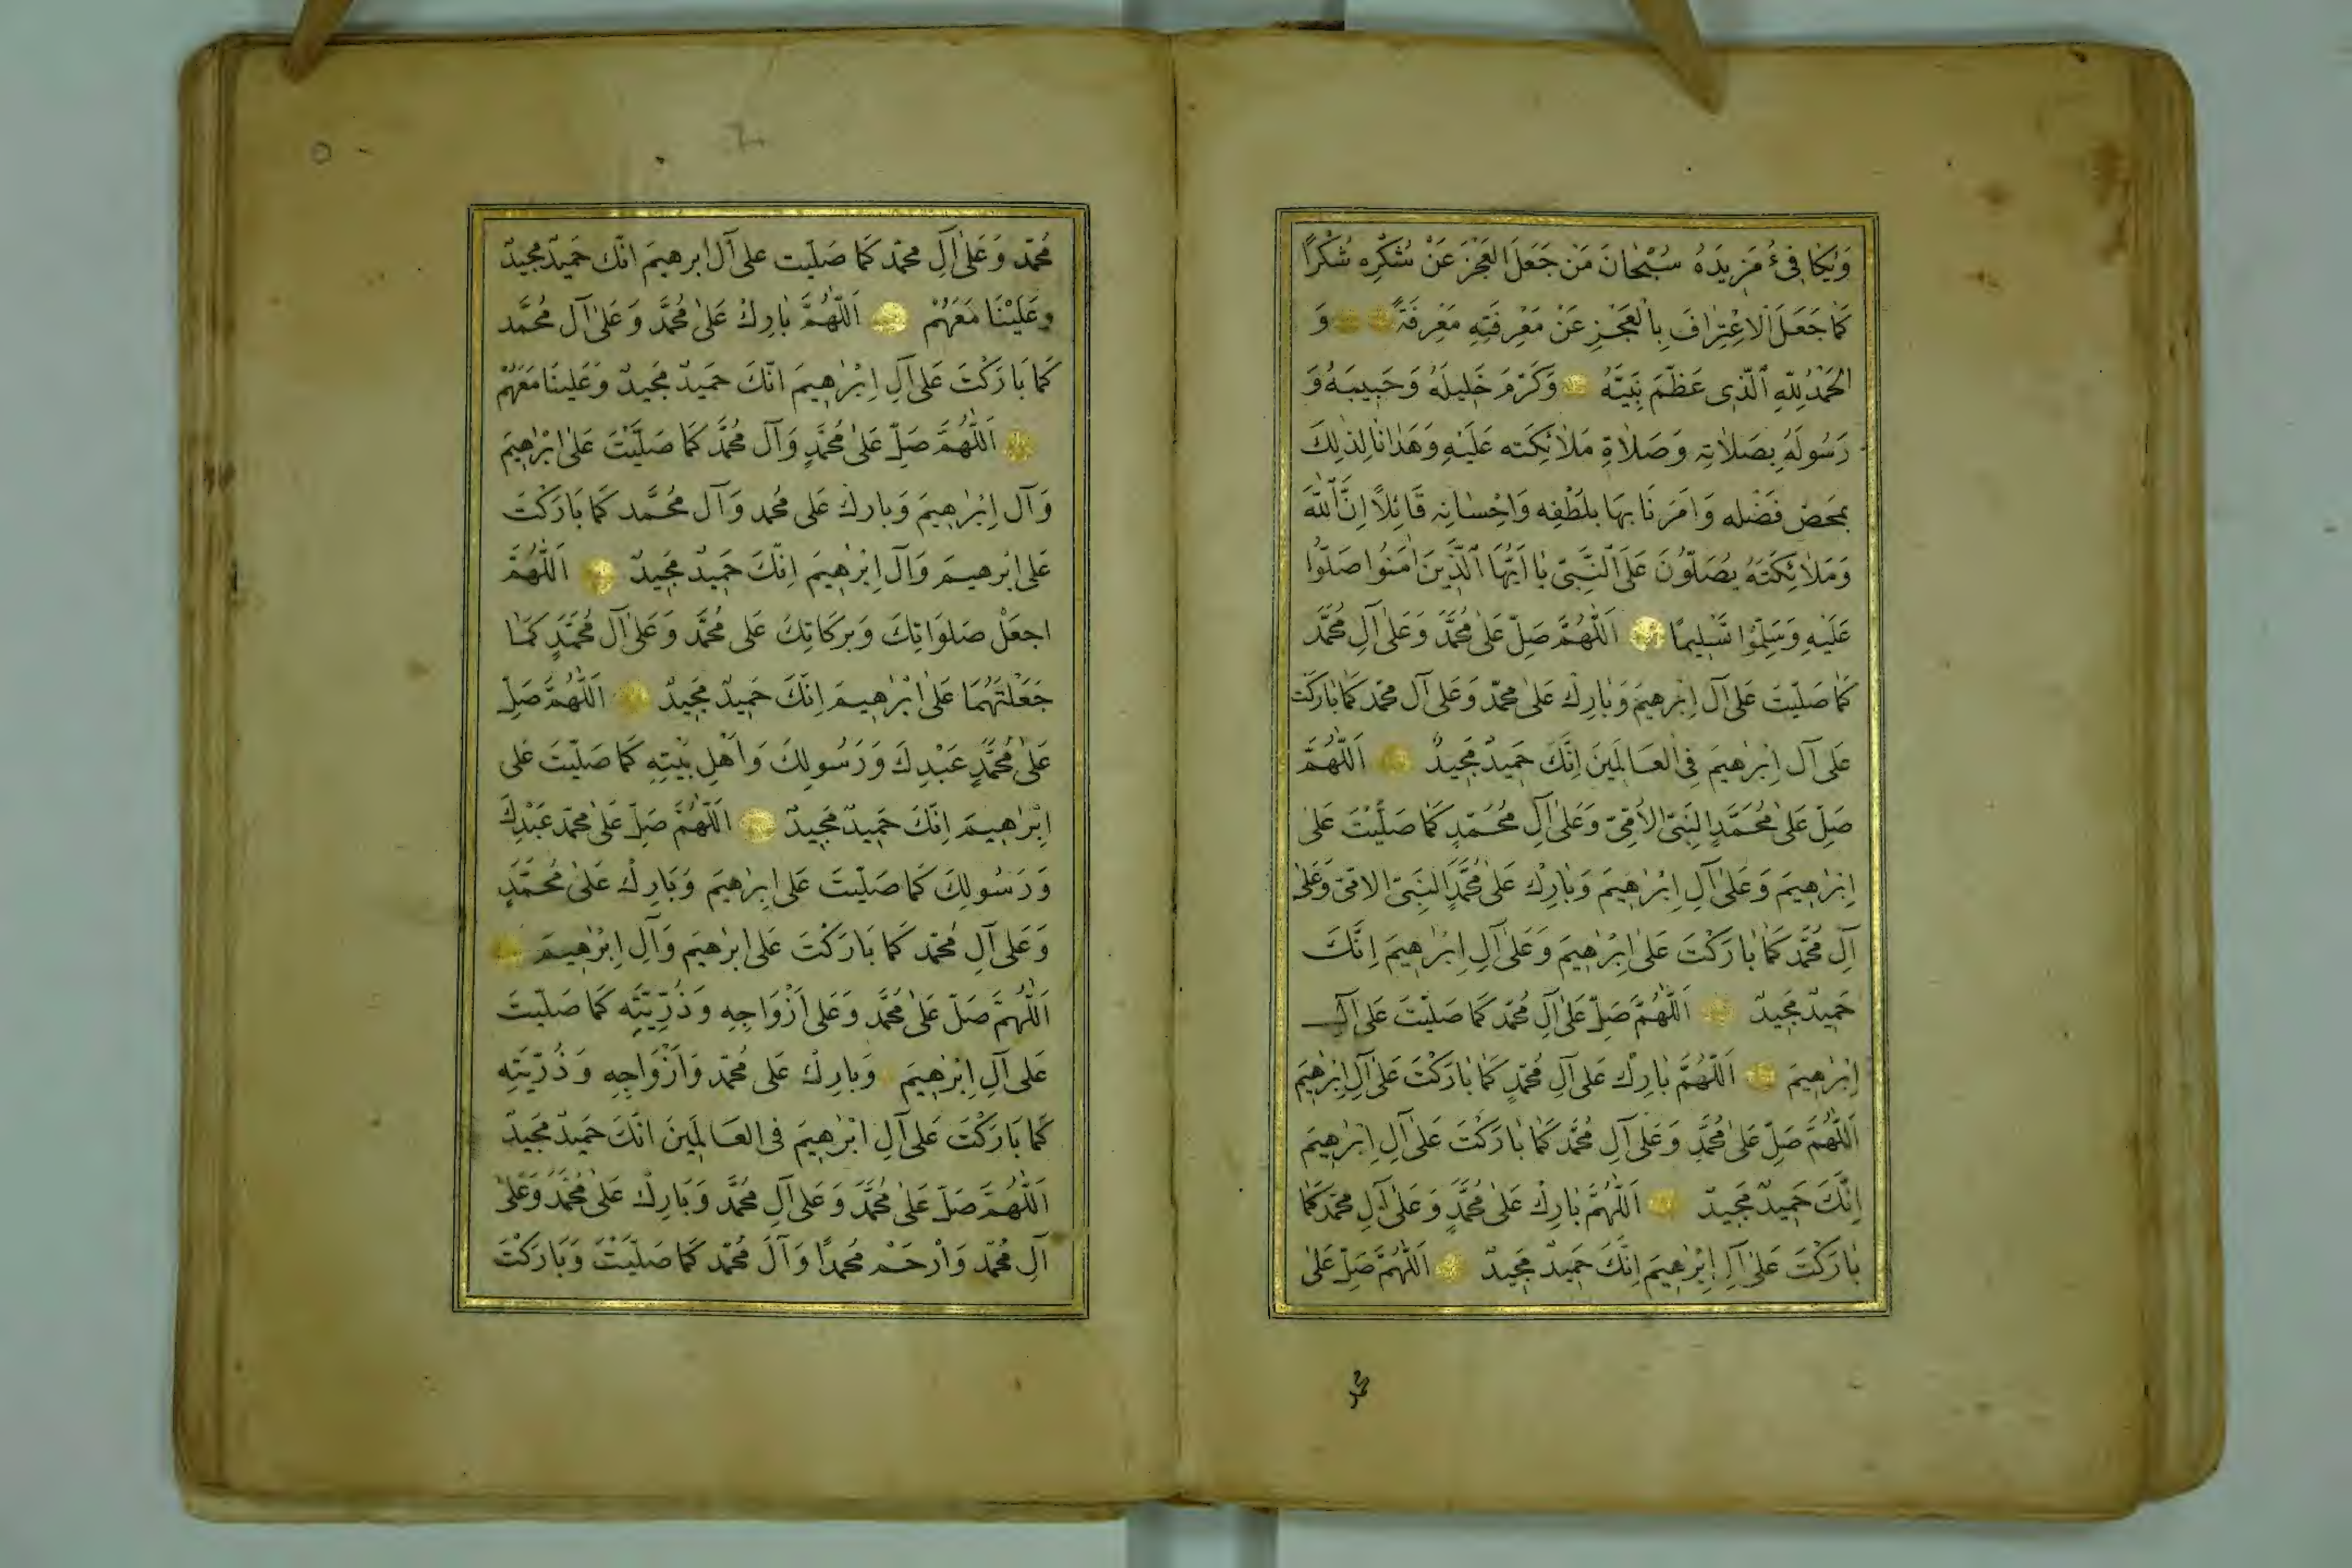 وَيُكَافِىءُ مَزِيدَهُ سُبْحَانَ مَنْ جَعَلَ الْعَجْزَ عَنْ شُكْرِهِ شُكْرًا
كَمَا جَعَلَ الْاِعْتِرَافَ بِالْعَجْزِ عَنْ مَعْرِفَتِهِ مَعْرِفَةً وَ
الْحَمْدُ لِلّٰهِ الَّذِى عَظَّمَ نَبِيَّهُ وَكَرَّمَ خَلِيلَهُ وَحَبِيبَهُ وَ
رَسُولَهُ بِصَلَاتِهِ وَصَلَاةِ مَلَائِكَتِه عَلَيْهِ وَهَدَانَا لِذٰلِكَ
بِمَحْضِ فَضْلِه وَاَمَرَنَا بِهَا بِلُطْفِه وَاِحْسَانِه قَائِلًا اِنَّ اللّٰهَ
وَمَلَائِكَتَهُ يُصَلُّونَ عَلَى النَّبِىِّ يَا اَيُّهَا الَّذِينَ اٰمَنُوا صَلُّوا
عَلَيْهِ وَسَلِّمُوا تَسْلِيمًا اَللّٰهُمَّ صَلِّ عَلٰى مُحَمَّدٍ وَعَلٰى آلِ مُحَمَّد
كَمَا صَلَّيْتَ عَلٰى آلِ اِبْرٰهِيمَ وَبَارِكْ عَلٰى محمّد وَعَلٰى آلِ محمّد كَمَا بَارَكْتَ
عَلٰى آلِ اِبْرٰهِيمَ فِى الْعَالَمِينَ اِنَّكَ حَمِيدٌ مَجِيدٌ اَللّٰهُمَّ
صَلِّ عَلٰى مُحَمَّدٍ النَّبِىِّ الْاُمِّىِّ وَعَلٰى آلِ مُحَمَّدٍ كَمَا صَلَّيْتَ عَلٰى
اِبْرٰهِيمَ وَعَلٰى آلِ اِبْرٰهِيمَ وَبَارِكْ عَلٰى مُحَمَّدٍ النَّبِىِّ الامّىّ وَعَلٰى
آلِ مُحَمَّد كَمَا بَارَكْتَ عَلٰى اِبْرٰهِيمَ وَعَلٰى آلِ اِبْرٰهِيمَ اِنَّكَ
حَمِيدٌ مَجِيدٌ اَللّٰهُمَّ صَلِّ عَلٰى آلِ مُحَمّد كَمَا صَلَّيْتَ عَلٰى آلِ
اِبْرٰهِيمَ اَللّٰهُمَّ بَارِكْ عَلٰى آلِ مُحَمَّدٍ كَمَا بَارَكْتَ عَلٰى آلِ اِبْرٰهِيمَ
اَللّٰهُمَّ صَلِّ عَلٰى مُحَمَّدٍ وَعَلٰى آلِ مُحَمَّد كَمَا بَارَكْتَ عَلٰى آلِ اِبْرٰهِيمَ
اِنَّكَ حَمِيدٌ مَجِيدٌ اَللّٰهُمَّ بَارِكْ عَلٰى مُحَمَّدٍ وَعَلٰى آلِ محمّد كَمَا
بَارَكْتَ عَلٰى آلِ اِبْرٰهِيمَ اِنَّكَ حَمِيدٌ مَجِيدٌ اَللّٰهُمَّ صَلِّ عَلٰى
محمد
مُحَمّد وَعَلٰى آلِ محمّد كَمَا صَلَّيت على آل ابرهيمَ انّك حَمِيدٌ مجِيدٌ
وعَلَيْنَا مَعَهُمْ اَللّٰهُمَّ بَارِكْ عَلٰى مُحَمَّد وَعَلٰى آلِ مُحَمَّد
كَمَا بَارَكْتَ عَلٰى آلِ اِبْرٰهِيمَ انَّكَ حَمِيدٌ مَجِيدٌ وَعَلَيْنَا مَعَهُمْ
اَللّٰهُمَّ صَلِّ عَلٰى مُحَمَّدٍ وَآلِ مُحَمَّد كَمَا صَلَّيْتَ عَلٰى ابْرٰهِيمَ
وَآلِ اِبْرٰهِيمَ وَبَارِكْ عَلٰى مُحمد وَآلِ مُحَمَّد كَمَا بَارَكْتَ
عَلٰى اِبْرهيمَ وَآلِ اِبْرٰهِيمَ اِنَّكَ حَمِيدٌ مَجِيدٌ اَللّٰهُمَّ
اجعَلْ صَلَوَاتِكَ وَبَرَكَاتِكَ عَلٰى مُحَمَّد وَعَلٰى آلِ مُحَمَّدٍ كَمَا
جَعَلْتَهُمَا عَلٰى اِبْرٰهِيمَ اِنَّكَ حَمِيدٌ مَجِيدٌ اَللّٰهُمَّ صَلِّ
عَلٰى مُحَمَّدٍ عَبْدِكَ وَرَسُولِكَ وَاَهْلِ بَيْتِهِ كَمَا صَلَّيْتَ عَلٰى
اِبْرٰهِيمَ اِنَّكَ حَمِيدٌ مَجِيدٌ اَللّٰهُمَّ صَلِّ عَلٰى محمّد عَبْدِكَ
وَرَسُولِكَ كَمَا صَلَّيْتَ عَلٰى اِبْرٰهِيمَ وَبَارِكْ عَلٰى مُحَمَّدٍ
وَعَلٰى آلِ مُحَمّد كَمَا بَارَكْتَ عَلٰى ابْرٰهِيمَ وَآلِ اِبْرٰهِيمَ
اَللّٰهُمَّ صَلِّ عَلٰى مُحَمَّد وَعَلٰى اَزْوَاجِهِ وَذُرِّيَّتِه كَمَا صَلَّيْتَ
عَلٰى آلِ اِبْرٰهِيمَ وَبَارِكْ عَلٰى مُحَمّد وَاَزْوَاجِهِ وَذُرِّيَّتِهِ
كَمَا بَارَكْتَ عَلٰى آلِ ابْرٰهِيمَ فى الْعَالَمِينَ انَّكَ حَمِيدٌ مَجِيدٌ
اَللّٰهُمَّ صَلِّ عَلٰى مُحَمَّدٍ وَعَلٰى آلِ مُحَمَّد وَبَارِكْ عَلٰى مُحَمَّدٍ وَعَلٰى
آلِ مُحَمّد وَارْحَمْ مُحَمدًا وَآلَ مُحَمّد كَمَا صَلَّيْتَ وَبَارَكْتَ